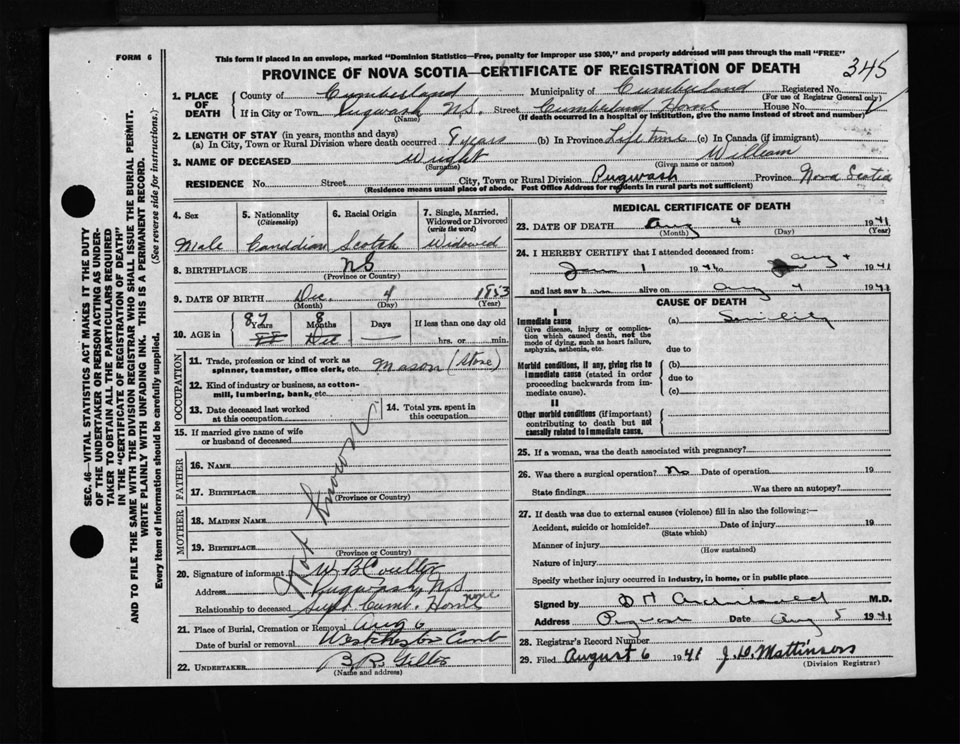 FORM 6
This form if placed in an envelope, marked "Dominion Statistics—Free, penalty for improper use $300," and properly addressed will pass through the mail "FREE"
PROVINCE OF NOVA SCOTIA—CERTIFICATE OF REGISTRATION OF DEATH
345
SEC. 46—VITAL STATISTICS ACT MAKES IT THE DUTY
OF THE UNDERTAKER OR PERSON ACTING AS UNDER-
TAKER TO OBTAIN ALL THE PARTICULARS REQUIRED
IN THE "CERTIFICATE OF REGISTRATION OF DEATH"
AND TO FILE THE SAME WITH THE DIVISION REGISTRAR WHO SHALL ISSUE THE BURIAL PERMIT.
WRITE PLAINLY WITH UNFADING INK. THIS IS A PERMANENT RECORD.
Every item of information should be carefully supplied. (See reverse side for instructions.)
1. PLACE OF DEATH
County of Cumberland Municipality of Cumberland Registered No.
(For use of Registrar General only)
If in City or Town Pugwash N.S. Street Cumberland Home House No.
(Name) (If death occurred in a hospital or institution, give the name instead of street and number)
2. LENGTH OF STAY (in years, months and days)
(a) In City, Town or Rural Division where death occurred 8 years (b) In Province Life time (c) In Canada (if immigrant)
3. NAME OF DECEASED Wright William
(Surname) (Given name or names)
RESIDENCE No. Street City, Town or Rural Division Pugwash Province Nova Scotia
(Residence means usual place of abode. Post Office Address for residents in rural parts not sufficient)
4. Sex 5. Nationality (Citizenship) 6. Racial Origin 7. Single, Married, Widowed or Divorced (write the word)
Male Canadian Scotch Widowed
8. BIRTHPLACE NS
(Province or Country)
9. DATE OF BIRTH Dec. 4 1853
(Month) (Day) (Year)
10. AGE in 87 Years 8 Months Days If less than one day old
hrs. or min.
OCCUPATION
11. Trade, profession or kind of work as
spinner, teamster, office clerk, etc. Mason (Stone)
12. Kind of industry or business, as cotton-
mill, lumbering, bank, etc.
13. Date deceased last worked
at this occupation
14. Total yrs. spent in
this occupation
15. If married give name of wife
or husband of deceased
FATHER
16. NAME
17. BIRTHPLACE
(Province or Country)
MOTHER
18. MAIDEN NAME
19. BIRTHPLACE
(Province or Country)
Not Known
20. Signature of informant W B Coulter
Address Pugwash N S
Relationship to deceased Supt Cumb. Home none
21. Place of Burial, Cremation or Removal Aug 6
Date of burial or removal Westchester Cumb
22. UNDERTAKER
(Name and address)
MEDICAL CERTIFICATE OF DEATH
23. DATE OF DEATH Aug 4 1941
(Month) (Day) (Year)
24. I HEREBY CERTIFY that I attended deceased from:
Jan 1 1941 to Aug 4 1941
and last saw h alive on Aug 4 1941
CAUSE OF DEATH
I
Immediate cause
Give disease, injury or complica-
tion which caused death, not the
mode of dying, such as heart failure,
asphyxia, asthenia, etc.
(a) Senility
due to
Morbid conditions, if any, giving rise to
immediate cause (stated in order
proceeding backwards from im-
mediate cause).
(b)
due to
(c)
II
Other morbid conditions (if important)
contributing to death but not
causally related to immediate cause.
25. If a woman, was the death associated with pregnancy?
26. Was there a surgical operation? No Date of operation 19
State findings Was there an autopsy?
27. If death was due to external causes (violence) fill in also the following:—
Accident, suicide or homicide? Date of injury 19
(State which)
Manner of injury
(How sustained)
Nature of injury
Specify whether injury occurred in industry, in home, or in public place
Signed by D H Archibald M.D.
Address Pugwash Date Aug 5 1941
28. Registrar's Record Number
29. Filed August 6 1941 J. D. Mattinson
(Division Registrar)